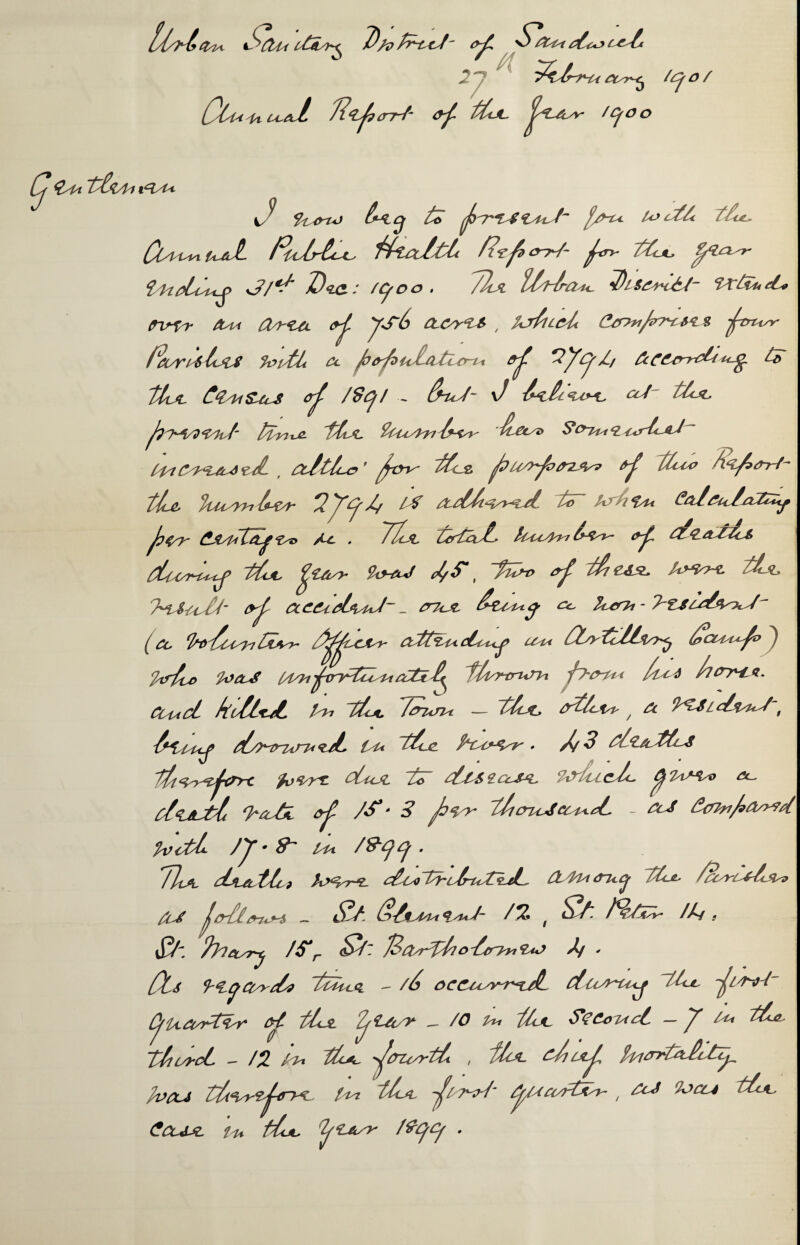 Urban Sanitary District of Sandwich
27th February 1901
Annual Report of the Year 1900
Gentlemen
I now beg to present you with the
Annual Public Health Report for the year
ending 31st Dec: 1900. The Urban District extends
over an area of 756 acres, which comprises four
Parishes with a population of 2794 according to
the Census of 1891 - but I believe, at the
present time the number has somewhat
increased, altho' for the purposes of this Report
the number 2794 is adhered to when calculating
per centages &c. The total number of deaths
during the year was 45, two of these were the
result of accident - one being a non-resident
(a Volunteer Officer attending an Artillery Camp)
who was unfortunately thrown from his horse
and killed in the Town — the other, a resident,
being drowned in the River. 43 deaths
therefore were due to disease which gives a
death rate of 15.3 per thousand - as compared
with 17.8 in 1899.
The deaths were distributed among the Parishes
as follows - St. Clement 12, St. Peter 14,
St. Mary 15, St. Bartholomew 4.
As regards time - 16 occurred during the first
Quarter of the Year - 10 in the Second - 7 in the
third - 12 in the fourth, the chief mortality
was therefore in the first quarter, as was the
case in the year 1899.